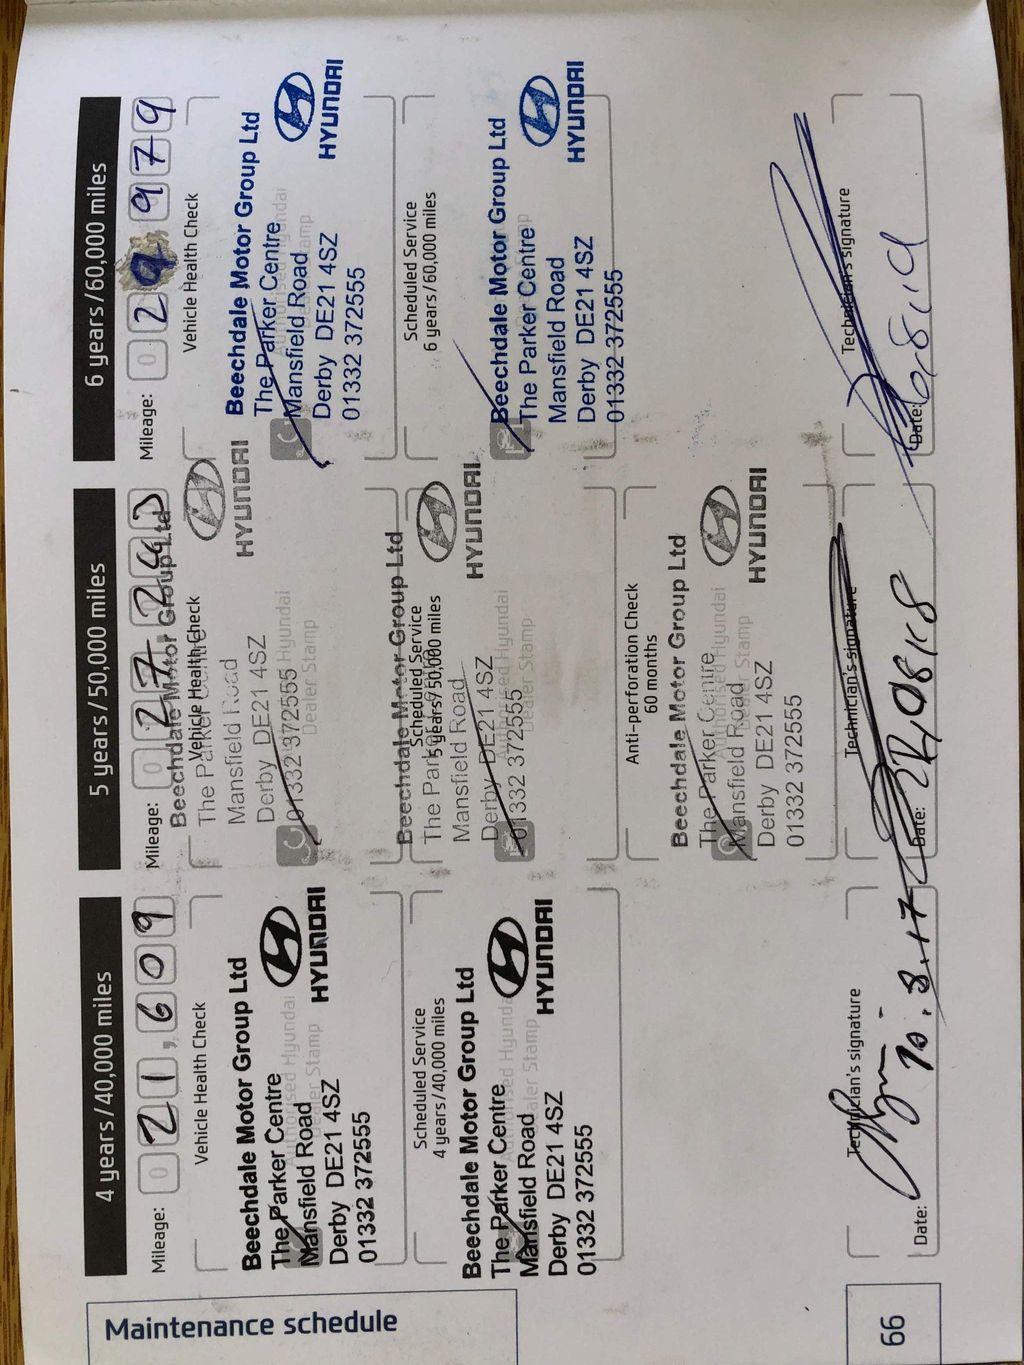 Maintenance schedule
4 years/40,000 miles
Mileage: 0 21,609
Vehicle Health Check
Authorised Hyundai
Dealer Stamp
Beechdale Motor Group Ltd
The Parker Centre
Mansfield Road
Derby DE21 4SZ
01332 372555
HYUNDAI
Scheduled Service
4 years/40,000 miles
Authorised Hyundai
Dealer Stamp
Beechdale Motor Group Ltd
The Parker Centre
Mansfield Road
Derby DE21 4SZ
01332 372555
HYUNDAI
Technician's signature
Date: 10.8.17
5 years/50,000 miles
Mileage: 0 27
Vehicle Health Check
Authorised Hyundai
Dealer Stamp
Beechdale Motor Group Ltd
The Parker Centre
Mansfield Road
Derby DE21 4SZ
01332 372555
HYUNDAI
Scheduled Service
5 years/50,000 miles
Authorised Hyundai
Dealer Stamp
Beechdale Motor Group Ltd
The Parker Centre
Mansfield Road
Derby DE21 4SZ
01332 372555
HYUNDAI
Anti-perforation Check
60 months
Authorised Hyundai
Dealer Stamp
Beechdale Motor Group Ltd
The Parker Centre
Mansfield Road
Derby DE21 4SZ
01332 372555
HYUNDAI
Technician's signature
Date: 22/08/18
6 years/60,000 miles
Mileage: 0 29 979
Vehicle Health Check
Authorised Hyundai
Dealer Stamp
Beechdale Motor Group Ltd
The Parker Centre
Mansfield Road
Derby DE21 4SZ
01332 372555
HYUNDAI
Scheduled Service
6 years/60,000 miles
Beechdale Motor Group Ltd
The Parker Centre
Mansfield Road
Derby DE21 4SZ
01332 372555
HYUNDAI
Technician's signature
Date:
66